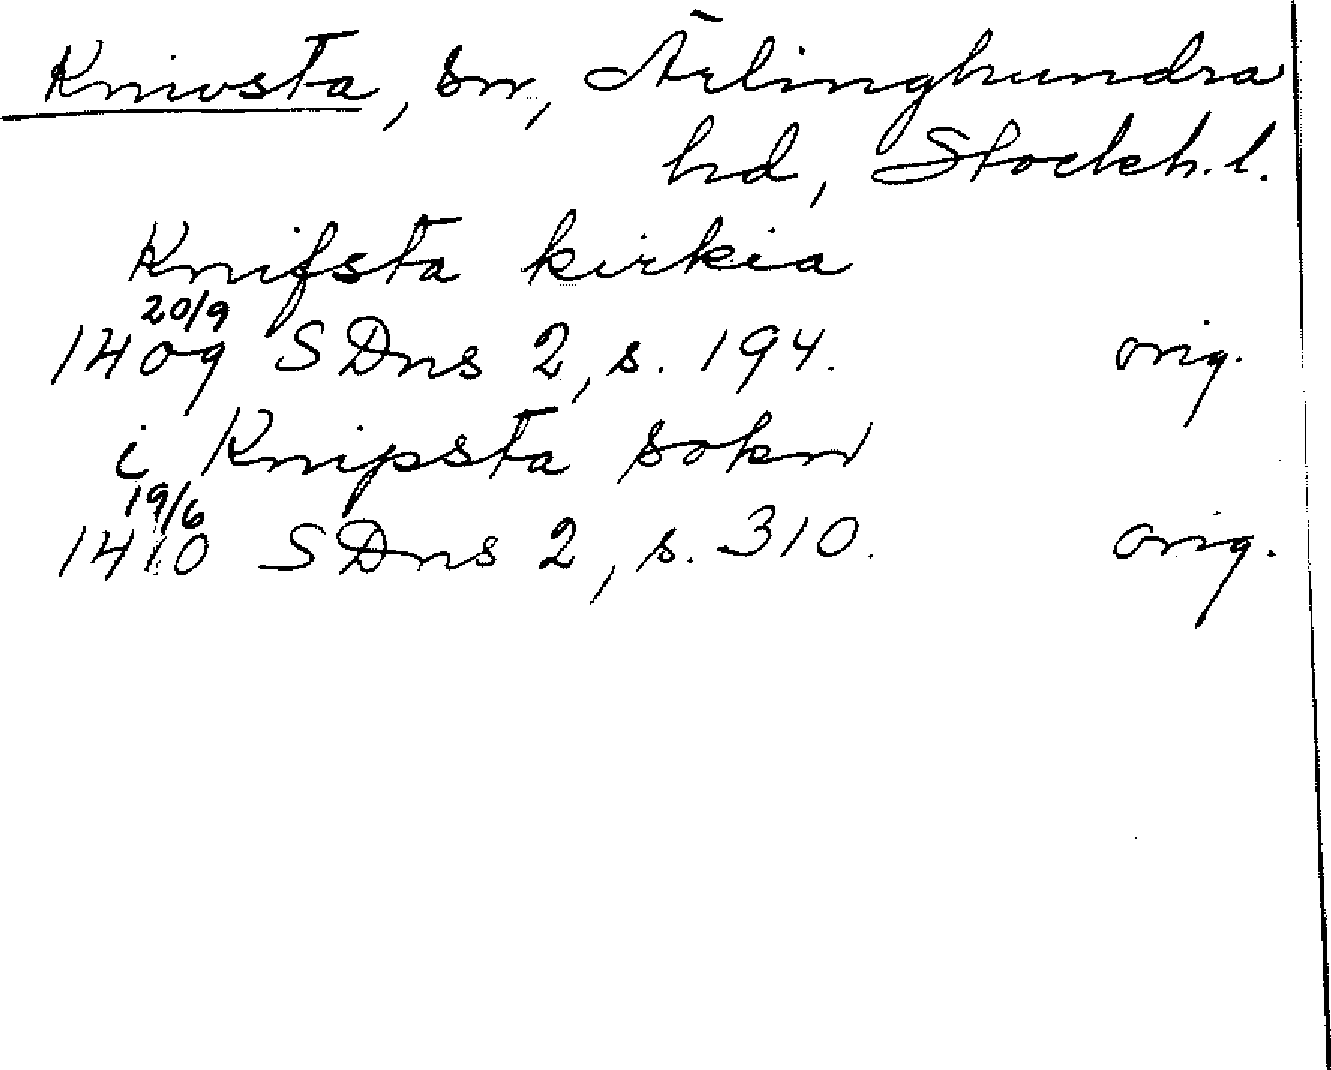 Knivsta, sn, Ärlinghundra
hd, Stockh. l.
Knifsta kirkia
20/9
1409 SDns 2, s. 194. orig.
i Knipsta sokn
19/6
1410 SDns 2, s. 310. orig.